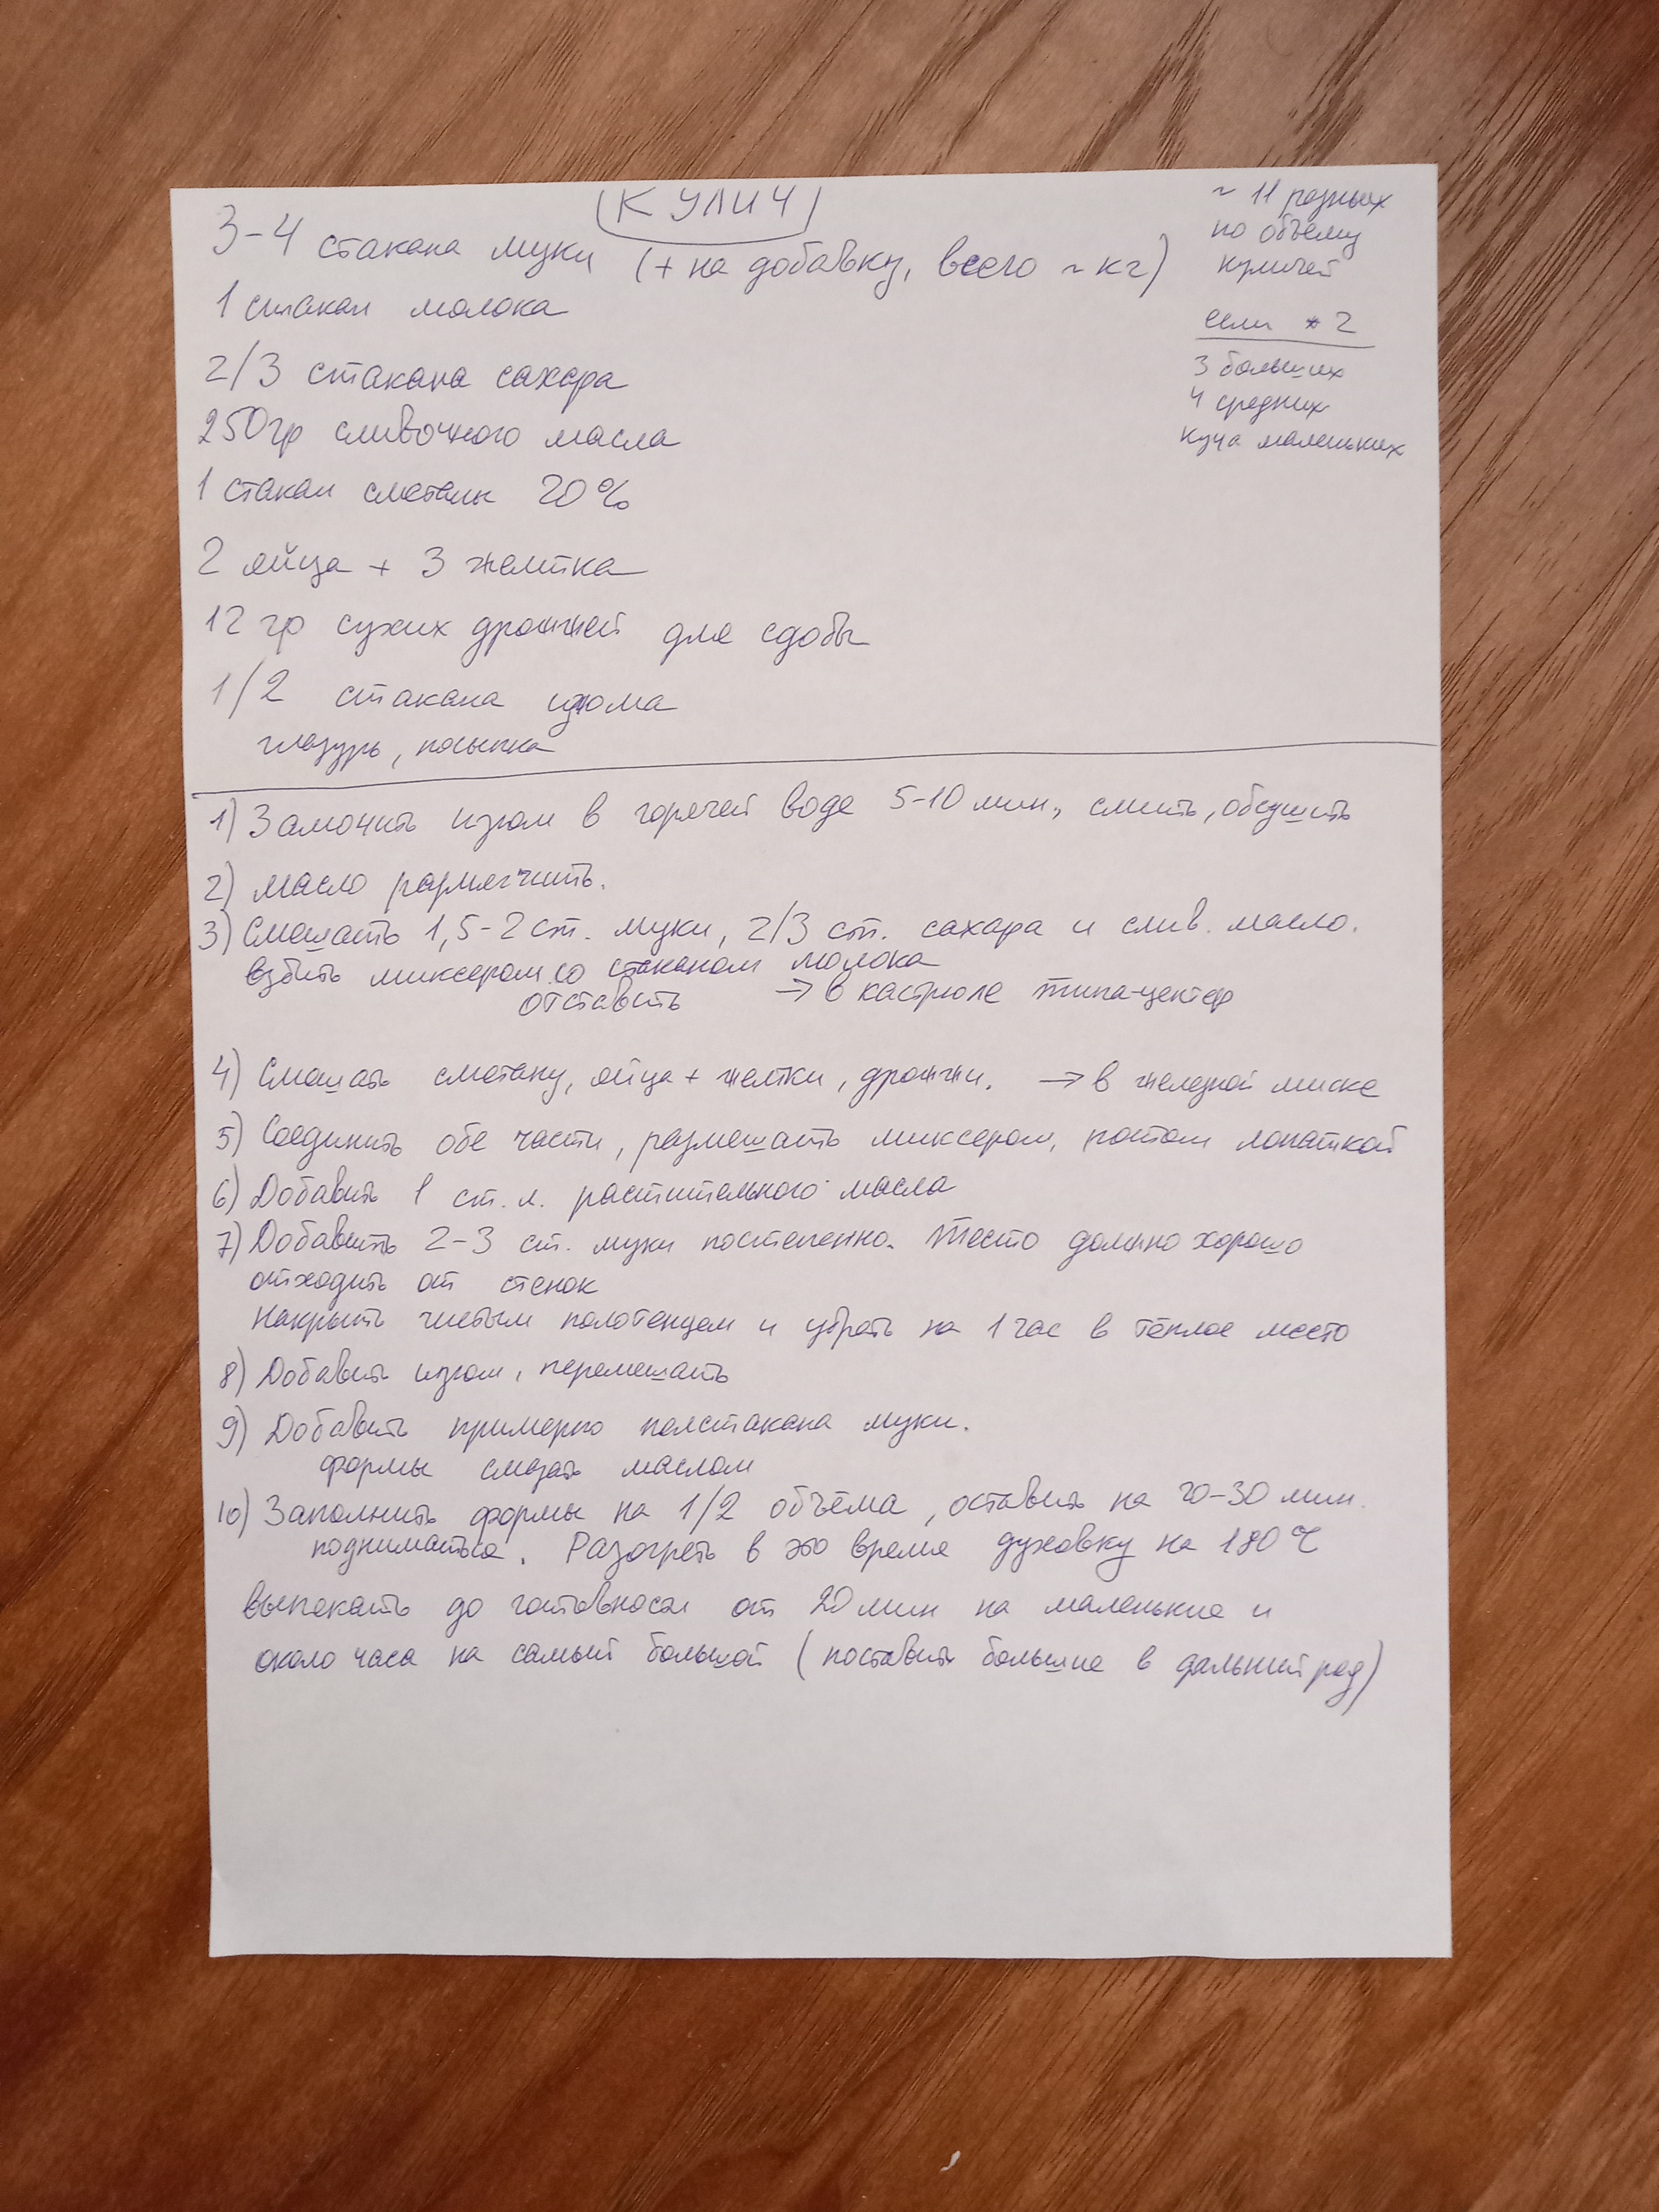 КУЛИЧ
3-4 стакана муки (+ на добавку, всего ~ кг)
1 стакан молока
2/3 стакана сахара
250гр сливочного масла
1 стакан сметаны 20%
2 яйца + 3 желтка
12 гр сухих дрожжей для сдобы
1/2 стакана изюма
глазурь, посыпка
~ 11 разных
по объёму
куличей
если * 2
3 больших
4 средних
куча маленьких
1) Замочить изюм в горячей воде 5-10 мин., слить, обсушить
2) Масло размягчить.
3) Смешать 1,5-2 ст. муки, 2/3 ст. сахара и слив. масло.
взбить миксером со стаканом молока
отставить → в кастрюле типа-цептер
4) Смешать сметану, яйца + желтки, дрожжи. → в железной миске
5) Соединить обе части, размешать миксером, потом лопаткой
6) Добавить 1 ст. л. растительного масла
7) Добавить 2-3 ст. муки постепенно. Тесто должно хорошо
отходить от стенок
Накрыть чистым полотенцем и убрать на 1 час в тёплое место
8) Добавить изюм, перемешать
9) Добавить примерно полстакана муки.
формы смазать маслом
10) Заполнить формы на 1/2 объёма, оставить на 20-30 мин.
подниматься. Разогреть в это время духовку на 180°C
выпекать до готовности от 20 мин на маленькие и
около часа на самый большой (поставить большие в дальний ряд)